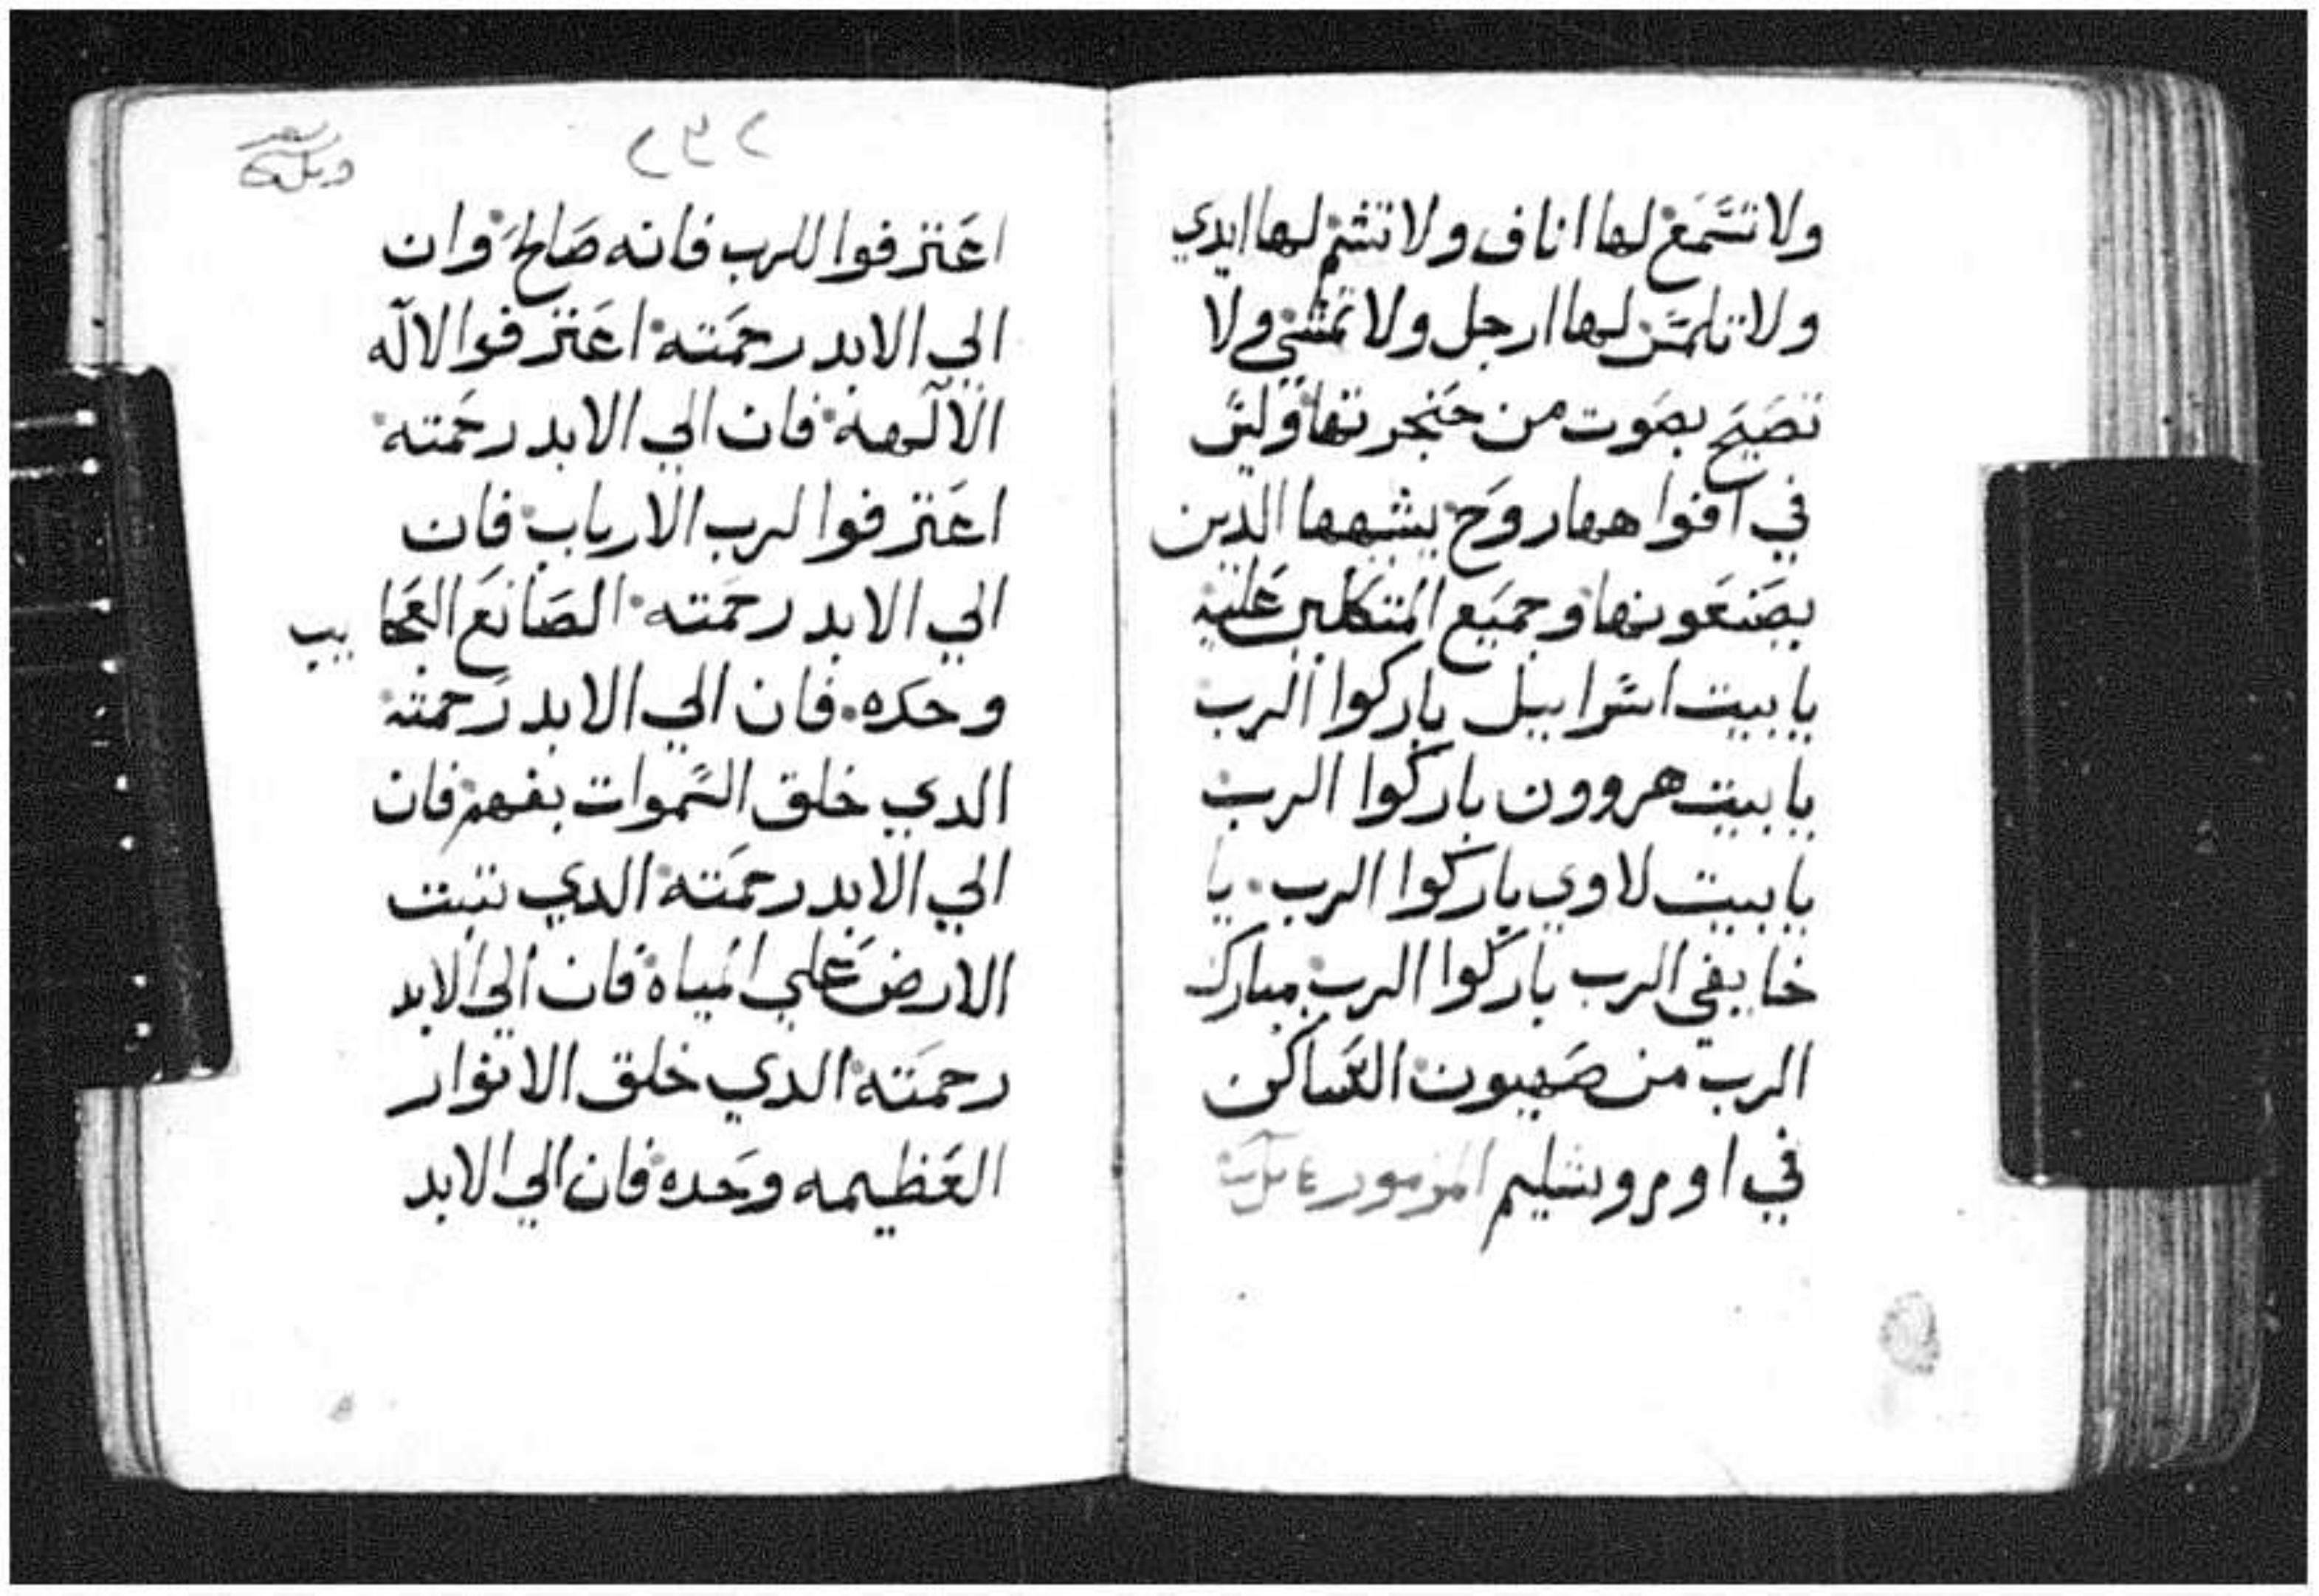 ولا تسمع لها اناف ولا تشم لها ايدي
ولا تلمس لها ارجل ولا تمشي ولا
تصيح بصوت من حنجرتها وليس
في افواهها روح يشبهها الدين
يصنعونها وجميع المتكلين عليه
يا بيت اسراييل باركوا الرب
يا بيت هروون باركوا الرب
يا بيت لاوي باركوا الرب يا
خايفي الرب باركوا الرب مبارك
الرب من صهيون الساكن
في اوروشليم المزمور
٢٣٢
اعترفوا للرب فانه صالح وان
الي الابد رحمته اعترفوا لالاه
الالهة فان الي الابد رحمته
اعترفوا لرب الارباب فان
الي الابد رحمته الصانع العجايب
وحده فان الي الابد رحمته
الدي خلق السموات بفهم فان
الي الابد رحمته الدي تبت
الارض علي المياه فان الي الابد
رحمته الدي خلق الانوار
العظيمه وحده فان الي الابد